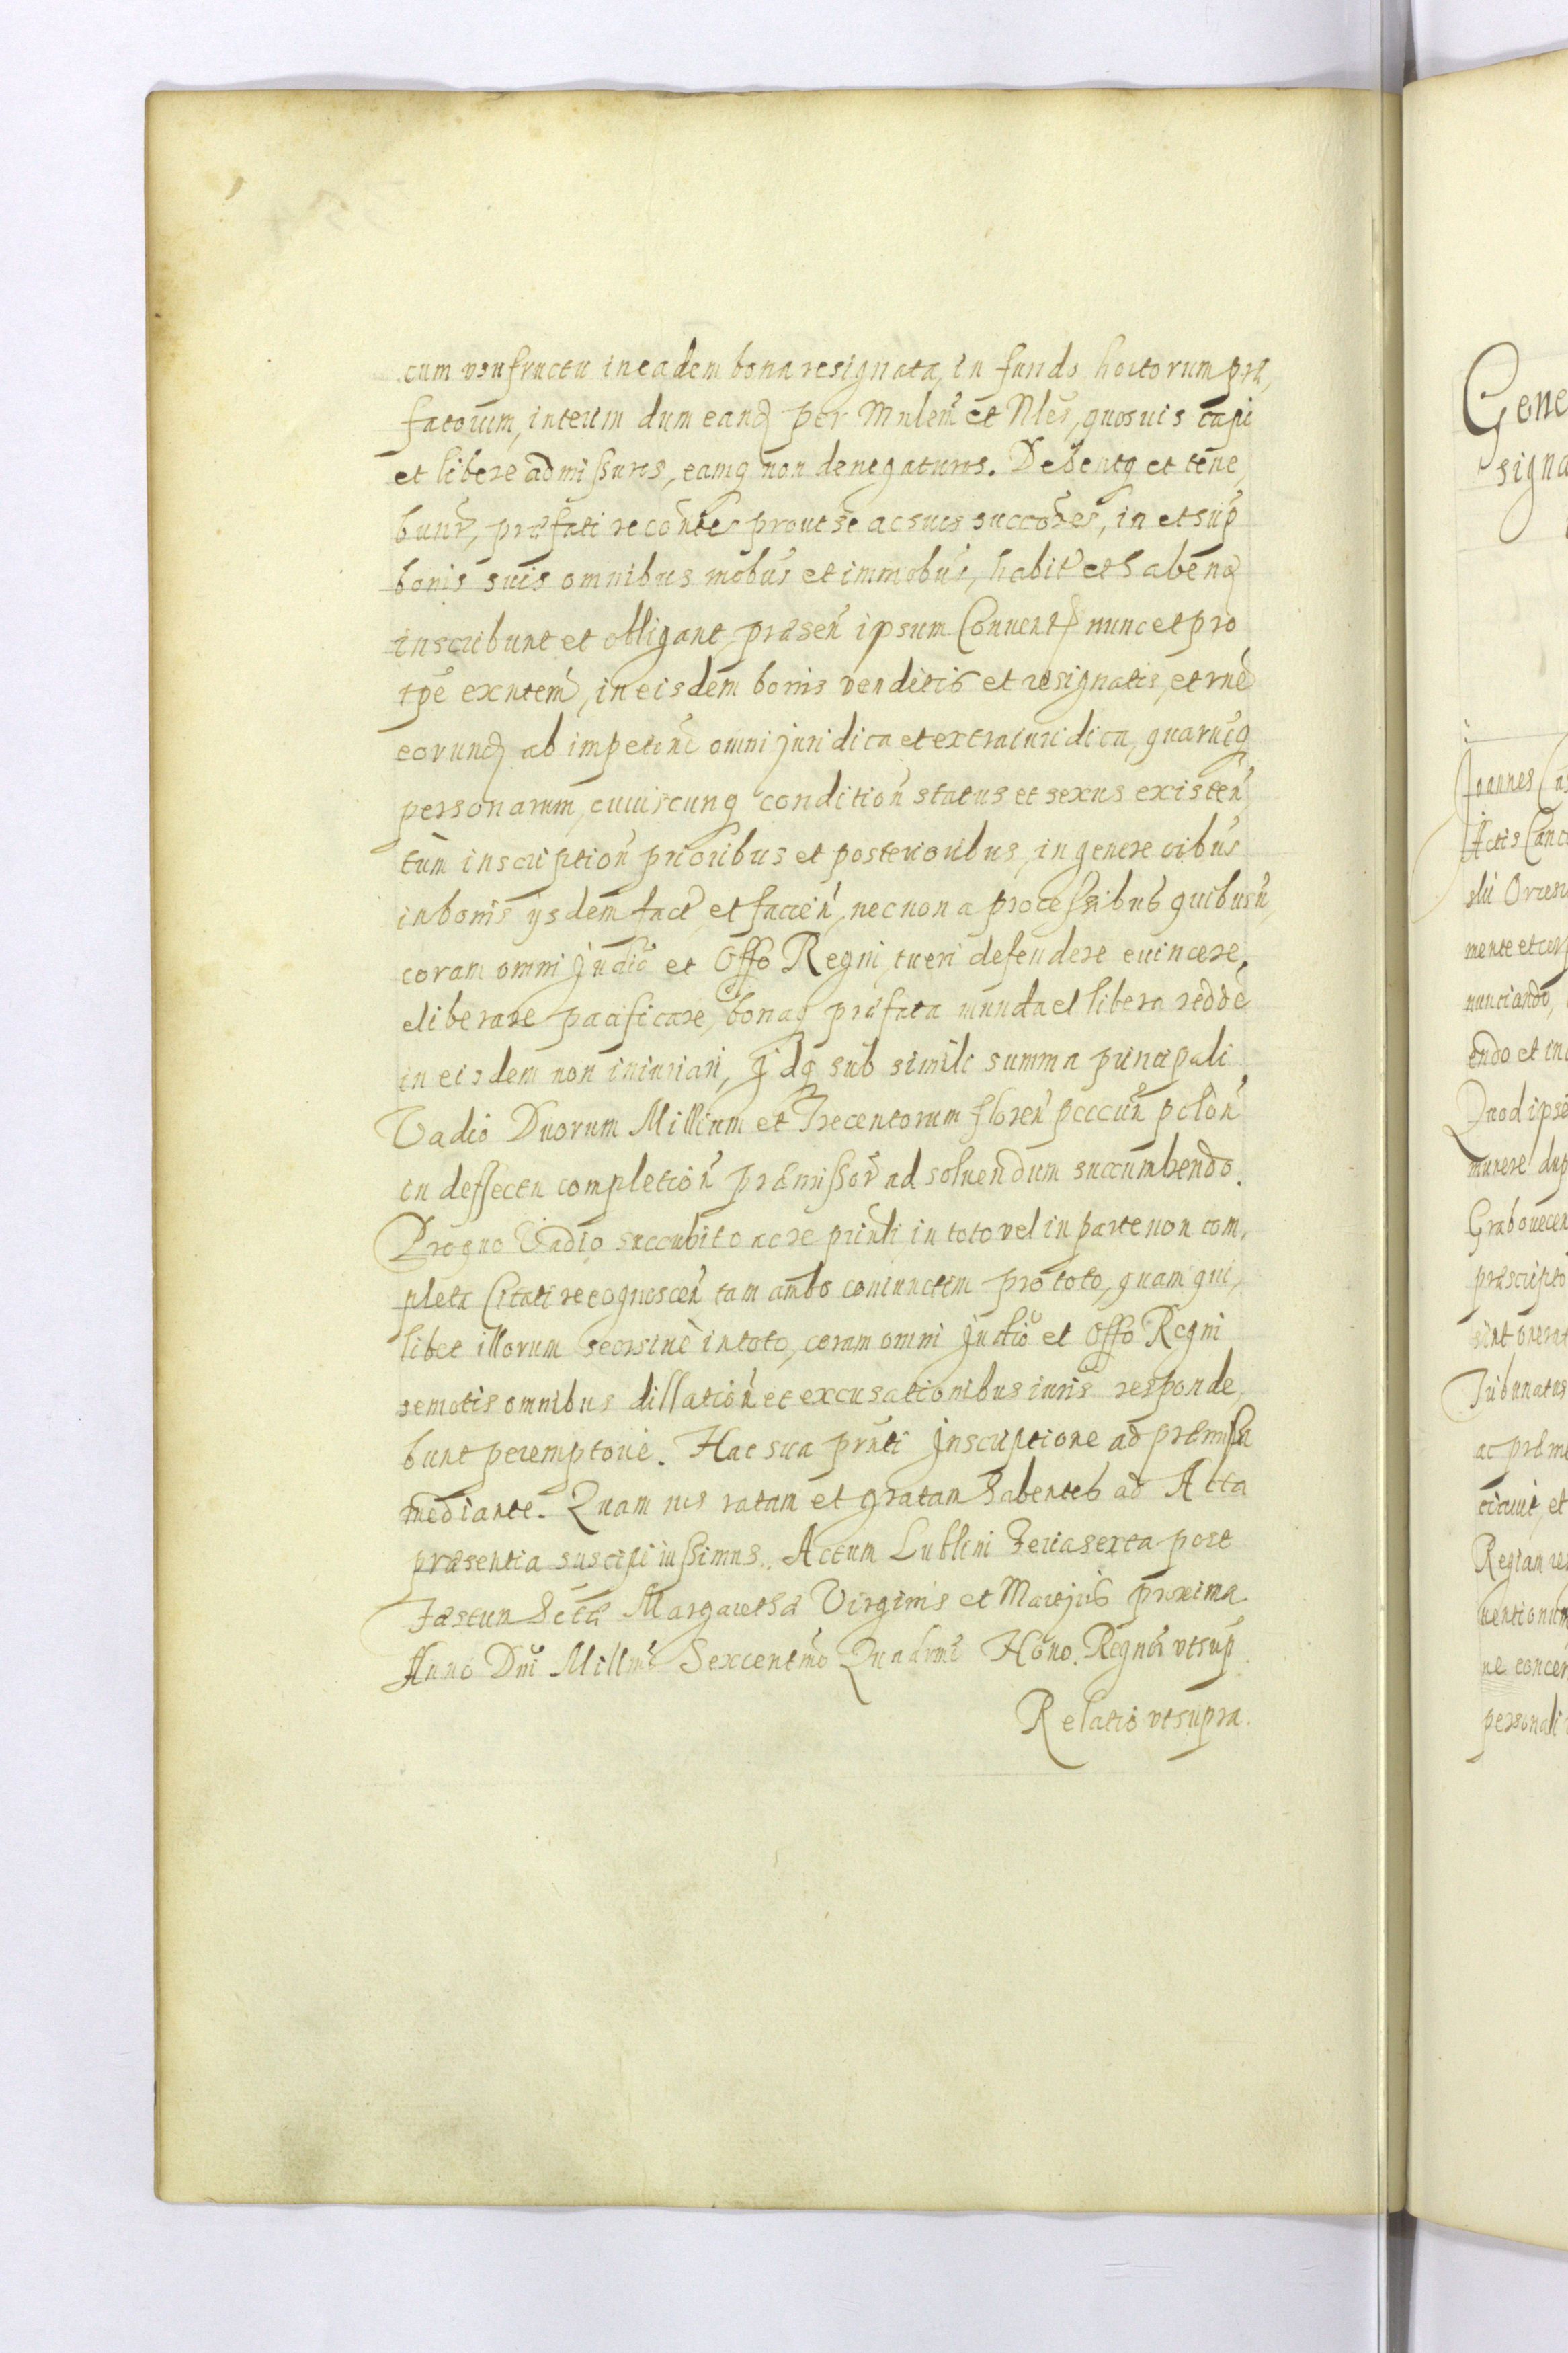 cum vsufructu in eadem bona resignata, in fundo hortorum præ,
fatorum, interim dum eand per Mnlem et Nles, quosuis capi
et libere admissuris, eamq non denegaturis. Debentq et tene,
bunt, præfati recontes prout se ac suos succores, in et sup
bonis suis omnibus mobus et immobus, habit et habend
inscribunt et obligant, præsen ipsum Conuent nunc et pro
tpe exntem, in eisdem bonis venditis et resignatis, et rne
eorund ab impetone omni juridica et extraiuridica, quarucq
personarum, cuiuscunq condition status et sexus existen
tum inscription prioribus et posterioribus, in genere oibus
in bonis ysdem fact et facien, necnon a processibus quibusn
coram omni Judio et Offo Regni, tueri defendere euincere,
eliberare pacificare, bonaq præfata munda et libera redde
in eisdem non iniuriari, Idq sub simili summa principali
Vadio Duorum Millium et Trecentorum floren peccun polon
in deffectu completion præmissor ad soluendum succumbendo.
Proquo Vadio succubito ac re prinli in toto vel in parte non com,
pleta Citati recognoscen tam ambo coniunctim pro toto, quam qui,
libet illorum seorsine in toto, coram omni Judio et Offo Regni
remotis omnibus dillation et excusationibus iuris responde,
bunt peremptorie. Hac sua prnti Inscriptione ad præmissa
mediante. Quam nos ratam et gratam habentes ad Acta
præsentia suscipi iussimus. Actum Lublini Feria sexta post
Fæstum Sctæ Margarethæ Virginis et Martyris proxima
Anno Dni Millmo Sexcentmo Quadrmo Nono. Regnor vtsup
Relatio vtsupra.
Gene
signa
Joannes Cas
Actis Canc
mente et cer
nunciando,
endo et in
Quod ipse
munere dup
Grabouecen
præscripto
sint onerat
Tribunatus
ac præm
ciauit, et
Regiam
uentionum
ne concer
personali